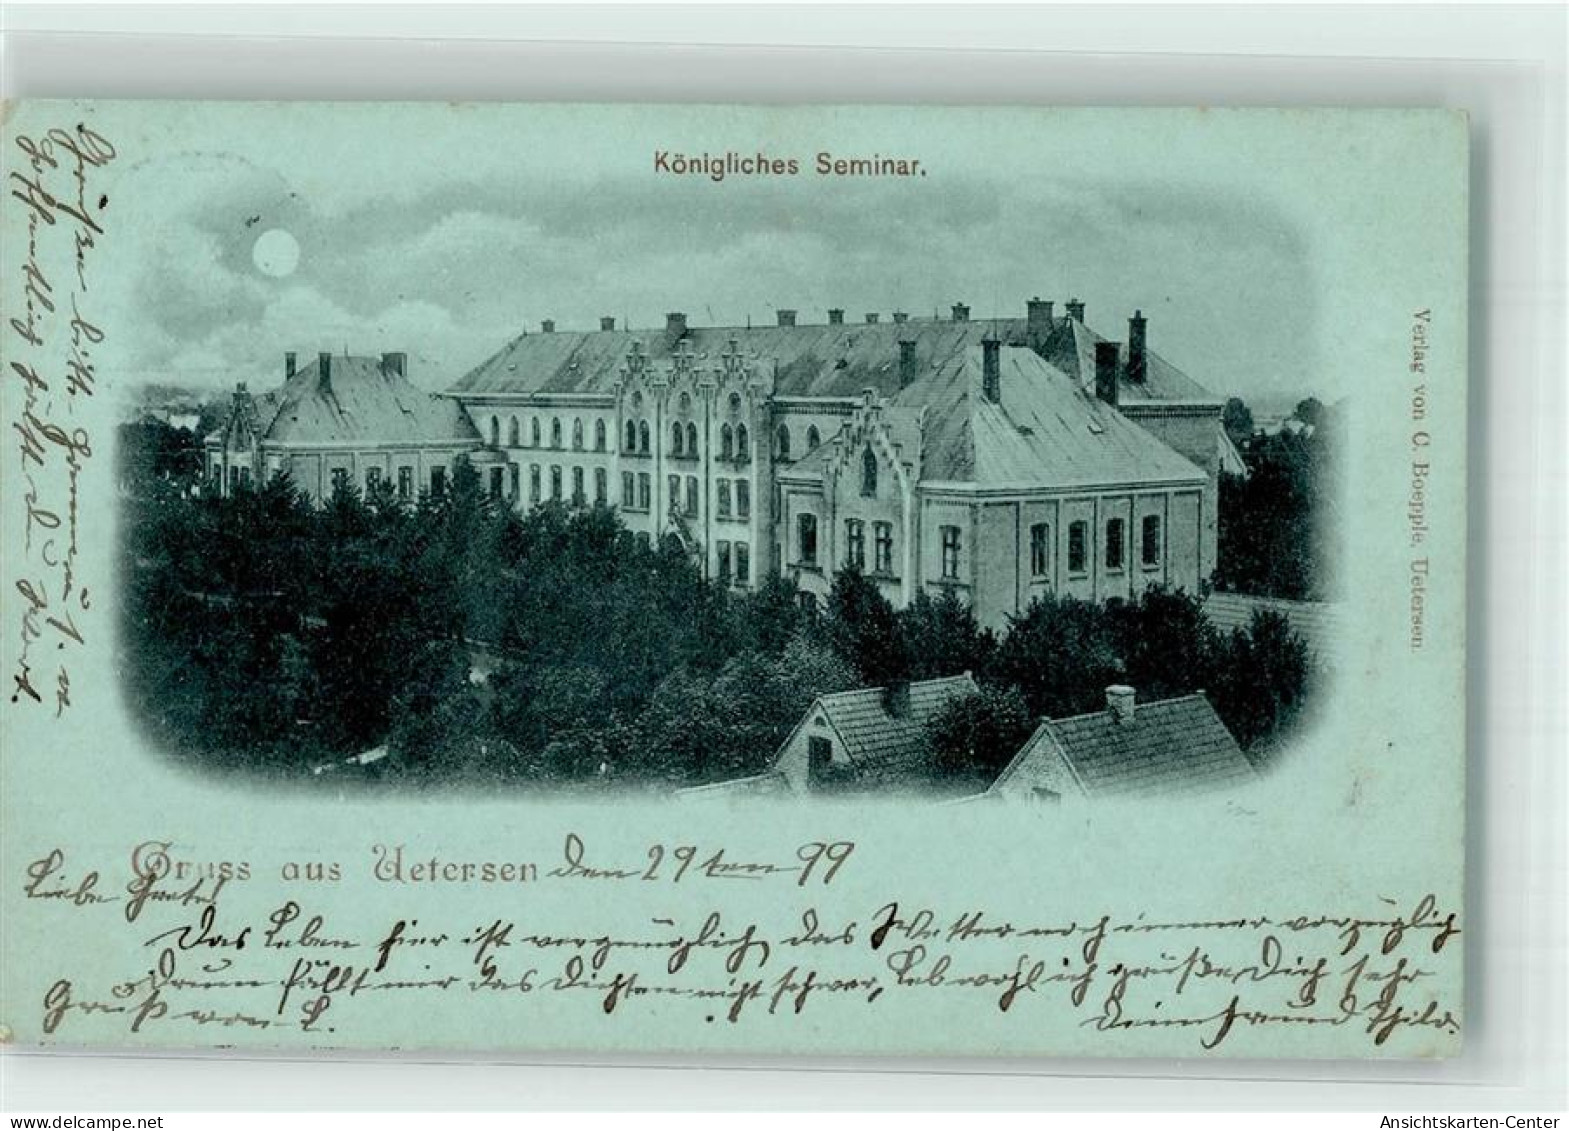 Königliches Seminar.
Verlag von C. Boepple, Uetersen.
Gruss aus Uetersen den 29ten 99
Liebe Grete!
Das Leben hier ist vergnüglich, das Wetter noch immer vorzüglich
Drum fällt mir das Dichten nicht schwer, Leb wohl ich grüße Dich sehr
Gruß von L.
Dein Freund Thilo.
Grüße bitte
Hoffentlig
delcampe.net
Ansichtskarten-Center